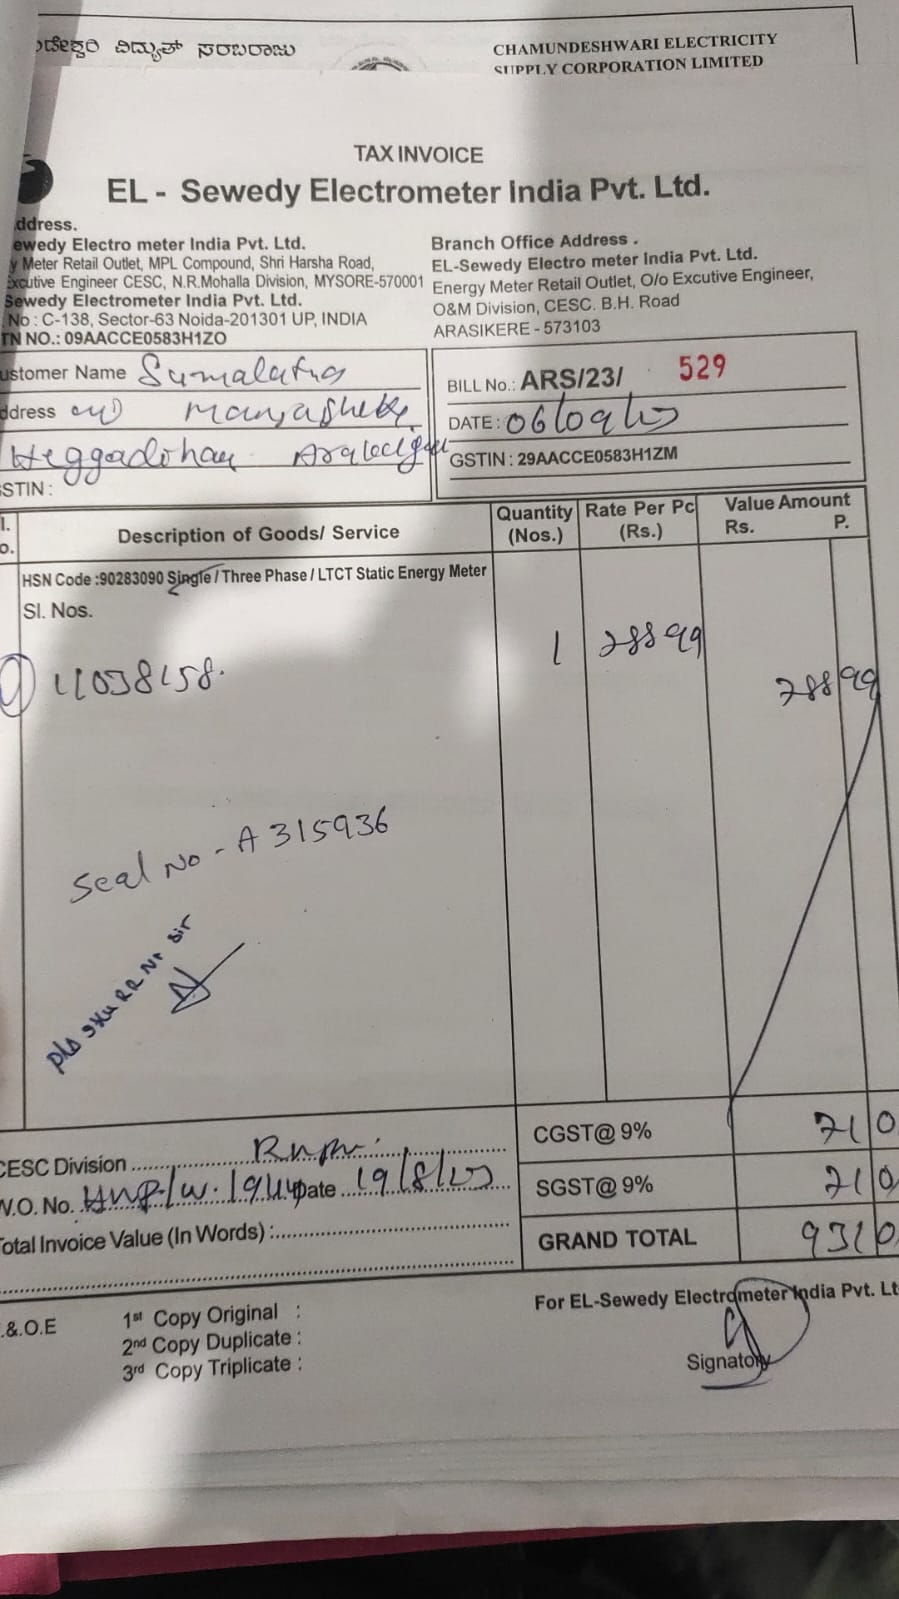 ವಿದ್ಯುತ್ ಸರಬರಾಜು
CHAMUNDESHWARI ELECTRICITY
SUPPLY CORPORATION LIMITED
TAX INVOICE
EL - Sewedy Electrometer India Pvt. Ltd.
ddress.
ewedy Electro meter India Pvt. Ltd.
y Meter Retail Outlet, MPL Compound, Shri Harsha Road,
xcutive Engineer CESC, N.R.Mohalla Division, MYSORE-570001
Sewedy Electrometer India Pvt. Ltd.
No : C-138, Sector-63 Noida-201301 UP, INDIA
TN NO.: 09AACCE0583H1ZO
Branch Office Address .
EL-Sewedy Electro meter India Pvt. Ltd.
Energy Meter Retail Outlet, O/o Excutive Engineer,
O&M Division, CESC. B.H. Road
ARASIKERE - 573103
ustomer Name Sumalatha
ddress
STIN :
BILL No.: ARS/23/ 529
DATE : 06/09/
GSTIN : 29AACCE0583H1ZM
l.
o.
Description of Goods/ Service
Quantity
(Nos.)
Rate Per Pc
(Rs.)
Value Amount
Rs. P.
HSN Code :90283090 Single / Three Phase / LTCT Static Energy Meter
Sl. Nos.
11038158.
1 788 99
788 99
Seal No - A 315936
RR No Sir
CESC Division
W.O. No. Date 19/8/
Total Invoice Value (In Words) :
CGST@ 9% 71 0
SGST@ 9% 71 0
GRAND TOTAL 931 0
.&.O.E
1st Copy Original :
2nd Copy Duplicate :
3rd Copy Triplicate :
For EL-Sewedy Electrometer India Pvt. Lt
Signatory